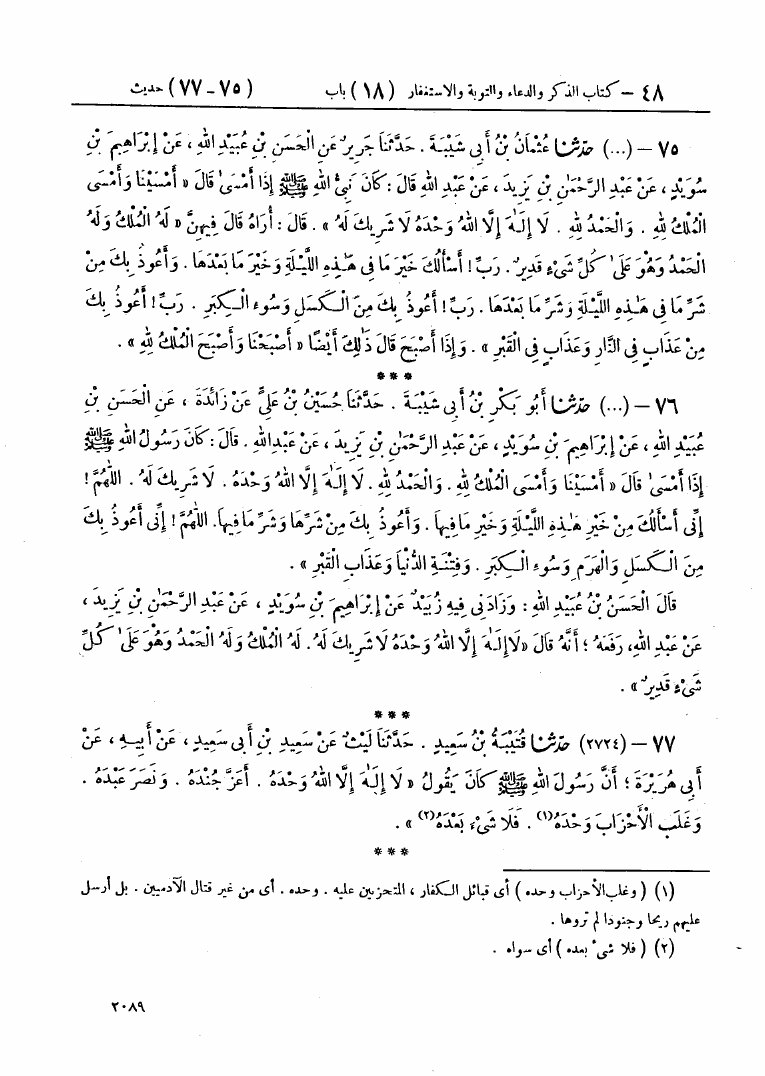 ٤٨ – كتاب الذكر والدعاء والتوبة والاستغفار (١٨) باب (٧٥ – ٧٧) حديث
٧٥ – (...) حَدَّثَنَا عُثْمَانُ بْنُ أَبِي شَيْبَةَ . حَدَّثَنَا جَرِيرٌ عَنِ الْحَسَنِ بْنِ عُبَيْدِ اللهِ ، عَنْ إِبْرَاهِيمَ بْنِ
سُوَيْدٍ ، عَنْ عَبْدِ الرَّحْمَٰنِ بْنِ يَزِيدَ ، عَنْ عَبْدِ اللهِ قَالَ : كَانَ نَبِيُّ اللهِ ﷺ إِذَا أَمْسَىٰ قَالَ « أَمْسَيْنَا وَأَمْسَى
الْمُلْكُ لِلهِ . وَالْحَمْدُ لِلهِ . لَا إِلَٰهَ إِلَّا اللهُ وَحْدَهُ لَا شَرِيكَ لَهُ » . قَالَ : أُرَاهُ قَالَ فِيهِنَّ « لَهُ الْمُلْكُ وَلَهُ
الْحَمْدُ وَهُوَ عَلَىٰ كُلِّ شَيْءٍ قَدِيرٌ . رَبِّ ! أَسْأَلُكَ خَيْرَ مَا فِي هَٰذِهِ اللَّيْلَةِ وَخَيْرَ مَا بَعْدَهَا . وَأَعُوذُ بِكَ مِنْ
شَرِّ مَا فِي هَٰذِهِ اللَّيْلَةِ وَشَرِّ مَا بَعْدَهَا . رَبِّ ! أَعُوذُ بِكَ مِنَ الْكَسَلِ وَسُوءِ الْكِبَرِ . رَبِّ ! أَعُوذُ بِكَ
مِنْ عَذَابٍ فِي النَّارِ وَعَذَابٍ فِي الْقَبْرِ » . وَإِذَا أَصْبَحَ قَالَ ذَٰلِكَ أَيْضًا « أَصْبَحْنَا وَأَصْبَحَ الْمُلْكُ لِلهِ » .
***
٧٦ – (...) حَدَّثَنَا أَبُو بَكْرِ بْنُ أَبِي شَيْبَةَ . حَدَّثَنَا حُسَيْنُ بْنُ عَلِيٍّ عَنْ زَائِدَةَ ، عَنِ الْحَسَنِ بْنِ
عُبَيْدِ اللهِ ، عَنْ إِبْرَاهِيمَ بْنِ سُوَيْدٍ ، عَنْ عَبْدِ الرَّحْمَٰنِ بْنِ يَزِيدَ ، عَنْ عَبْدِاللهِ . قَالَ : كَانَ رَسُولُ اللهِ ﷺ
إِذَا أَمْسَىٰ قَالَ « أَمْسَيْنَا وَأَمْسَى الْمُلْكُ لِلهِ . وَالْحَمْدُ لِلهِ . لَا إِلَٰهَ إِلَّا اللهُ وَحْدَهُ . لَا شَرِيكَ لَهُ . اللَّهُمَّ !
إِنِّي أَسْأَلُكَ مِنْ خَيْرِ هَٰذِهِ اللَّيْلَةِ وَخَيْرِ مَا فِيهَا . وَأَعُوذُ بِكَ مِنْ شَرِّهَا وَشَرِّ مَا فِيهَا . اللَّهُمَّ ! إِنِّي أَعُوذُ بِكَ
مِنَ الْكَسَلِ وَالْهَرَمِ وَسُوءِ الْكِبَرِ . وَفِتْنَةِ الدُّنْيَا وَعَذَابِ الْقَبْرِ » .
قَالَ الْحَسَنُ بْنُ عُبَيْدِ اللهِ : وَزَادَنِي فِيهِ زُبَيْدٌ عَنْ إِبْرَاهِيمَ بْنِ سُوَيْدٍ ، عَنْ عَبْدِ الرَّحْمَٰنِ بْنِ يَزِيدَ ،
عَنْ عَبْدِ اللهِ ، رَفَعَهُ ؛ أَنَّهُ قَالَ « لَا إِلَٰهَ إِلَّا اللهُ وَحْدَهُ لَا شَرِيكَ لَهُ . لَهُ الْمُلْكُ وَلَهُ الْحَمْدُ وَهُوَ عَلَىٰ كُلِّ
شَيْءٍ قَدِيرٌ » .
***
٧٧ – (٢٧٢٤) حَدَّثَنَا قُتَيْبَةُ بْنُ سَعِيدٍ . حَدَّثَنَا لَيْثٌ عَنْ سَعِيدِ بْنِ أَبِي سَعِيدٍ ، عَنْ أَبِيهِ ، عَنْ
أَبِي هُرَيْرَةَ ؛ أَنَّ رَسُولَ اللهِ ﷺ كَانَ يَقُولُ « لَا إِلَٰهَ إِلَّا اللهُ وَحْدَهُ . أَعَزَّ جُنْدَهُ . وَنَصَرَ عَبْدَهُ .
وَغَلَبَ الْأَحْزَابَ وَحْدَهُ(١) . فَلَا شَيْءَ بَعْدَهُ(٢) » .
***
(١) (وغلب الأحزاب وحده) أى قبائل الكفار ، المتحزبين عليه . وحده . أى من غير قتال الآدميين . بل أرسل
عليهم ريحا وجنودا لم تروها .
(٢) (فلا شىء بعده) أى سواه .
٢٠٨٩